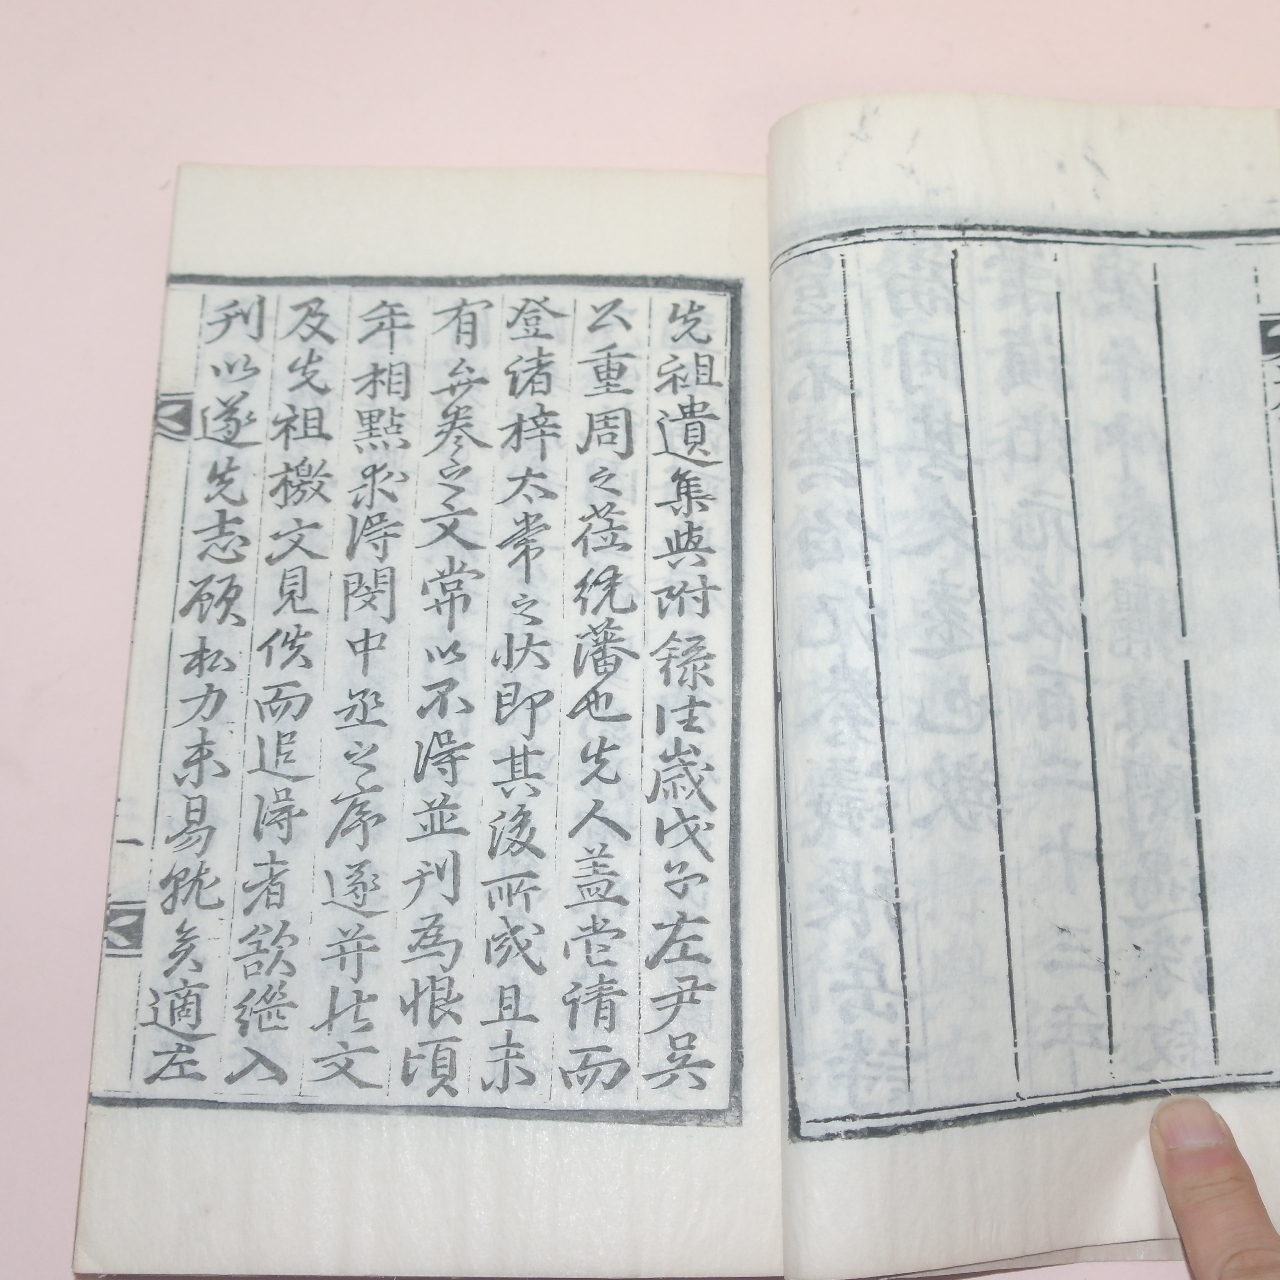 先祖遺集與附錄往歲戊子左尹吳
公重周之莅統藩也先人盖嘗請而
登諸梓太常之狀即其後所成且未
有弁卷之文常以不得並刊為恨頃
年相點求得閔中丞之序遂并此文
及先祖檄文見佚而追得者欲繼入
刊以遂先志顧私力未易就矣適左
一